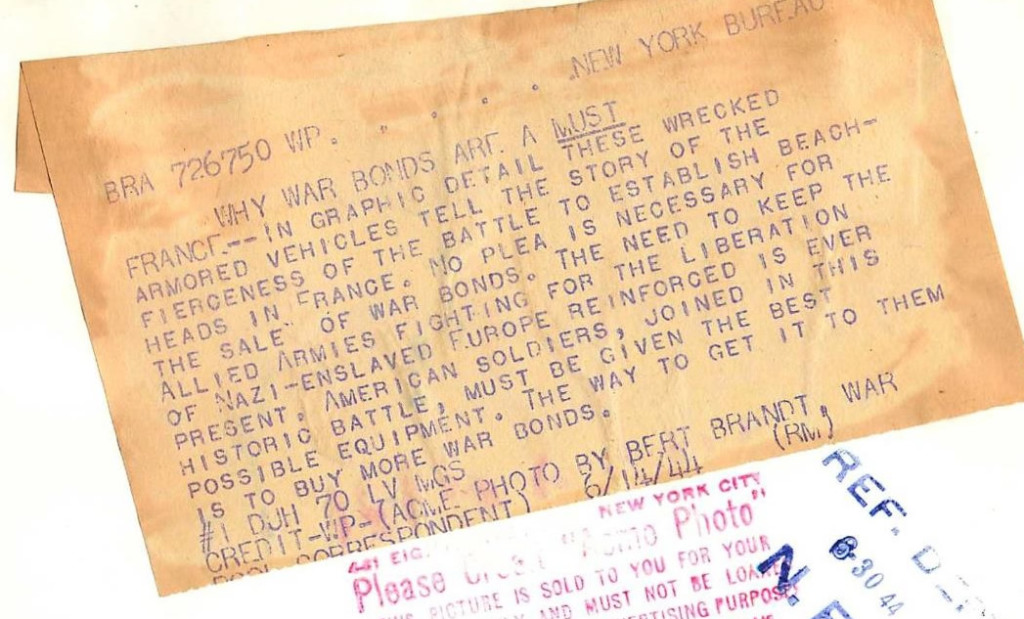 NEW YORK BUREAU
BRA 726750 WP.
WHY WAR BONDS ARE A MUST
FRANCE--IN GRAPHIC DETAIL THESE WRECKED
ARMORED VEHICLES TELL THE STORY OF THE
FIERCENESS OF THE BATTLE TO ESTABLISH BEACH-
HEADS IN FRANCE. NO PLEA IS NECESSARY FOR
THE SALE OF WAR BONDS. THE NEED TO KEEP THE
ALLIED ARMIES FIGHTING FOR THE LIBERATION
OF NAZI-ENSLAVED EUROPE REINFORCED IS EVER
PRESENT. AMERICAN SOLDIERS, JOINED IN THIS
HISTORIC BATTLE, MUST BE GIVEN THE BEST
POSSIBLE EQUIPMENT. THE WAY TO GET IT TO THEM
IS TO BUY MORE WAR BONDS.
#1 DJH 70 LV MGS
CREDIT-WP-(ACME PHOTO BY BERT BRANDT, WAR
POOL CORRESPONDENT) 6/14/44 (RM)
NEW YORK CITY
Please Credit "Acme Photo"
PICTURE IS SOLD TO YOU FOR YOUR
AND MUST NOT BE LOANED
PURPOSES
REF. DEPT.
6-30 44
N.